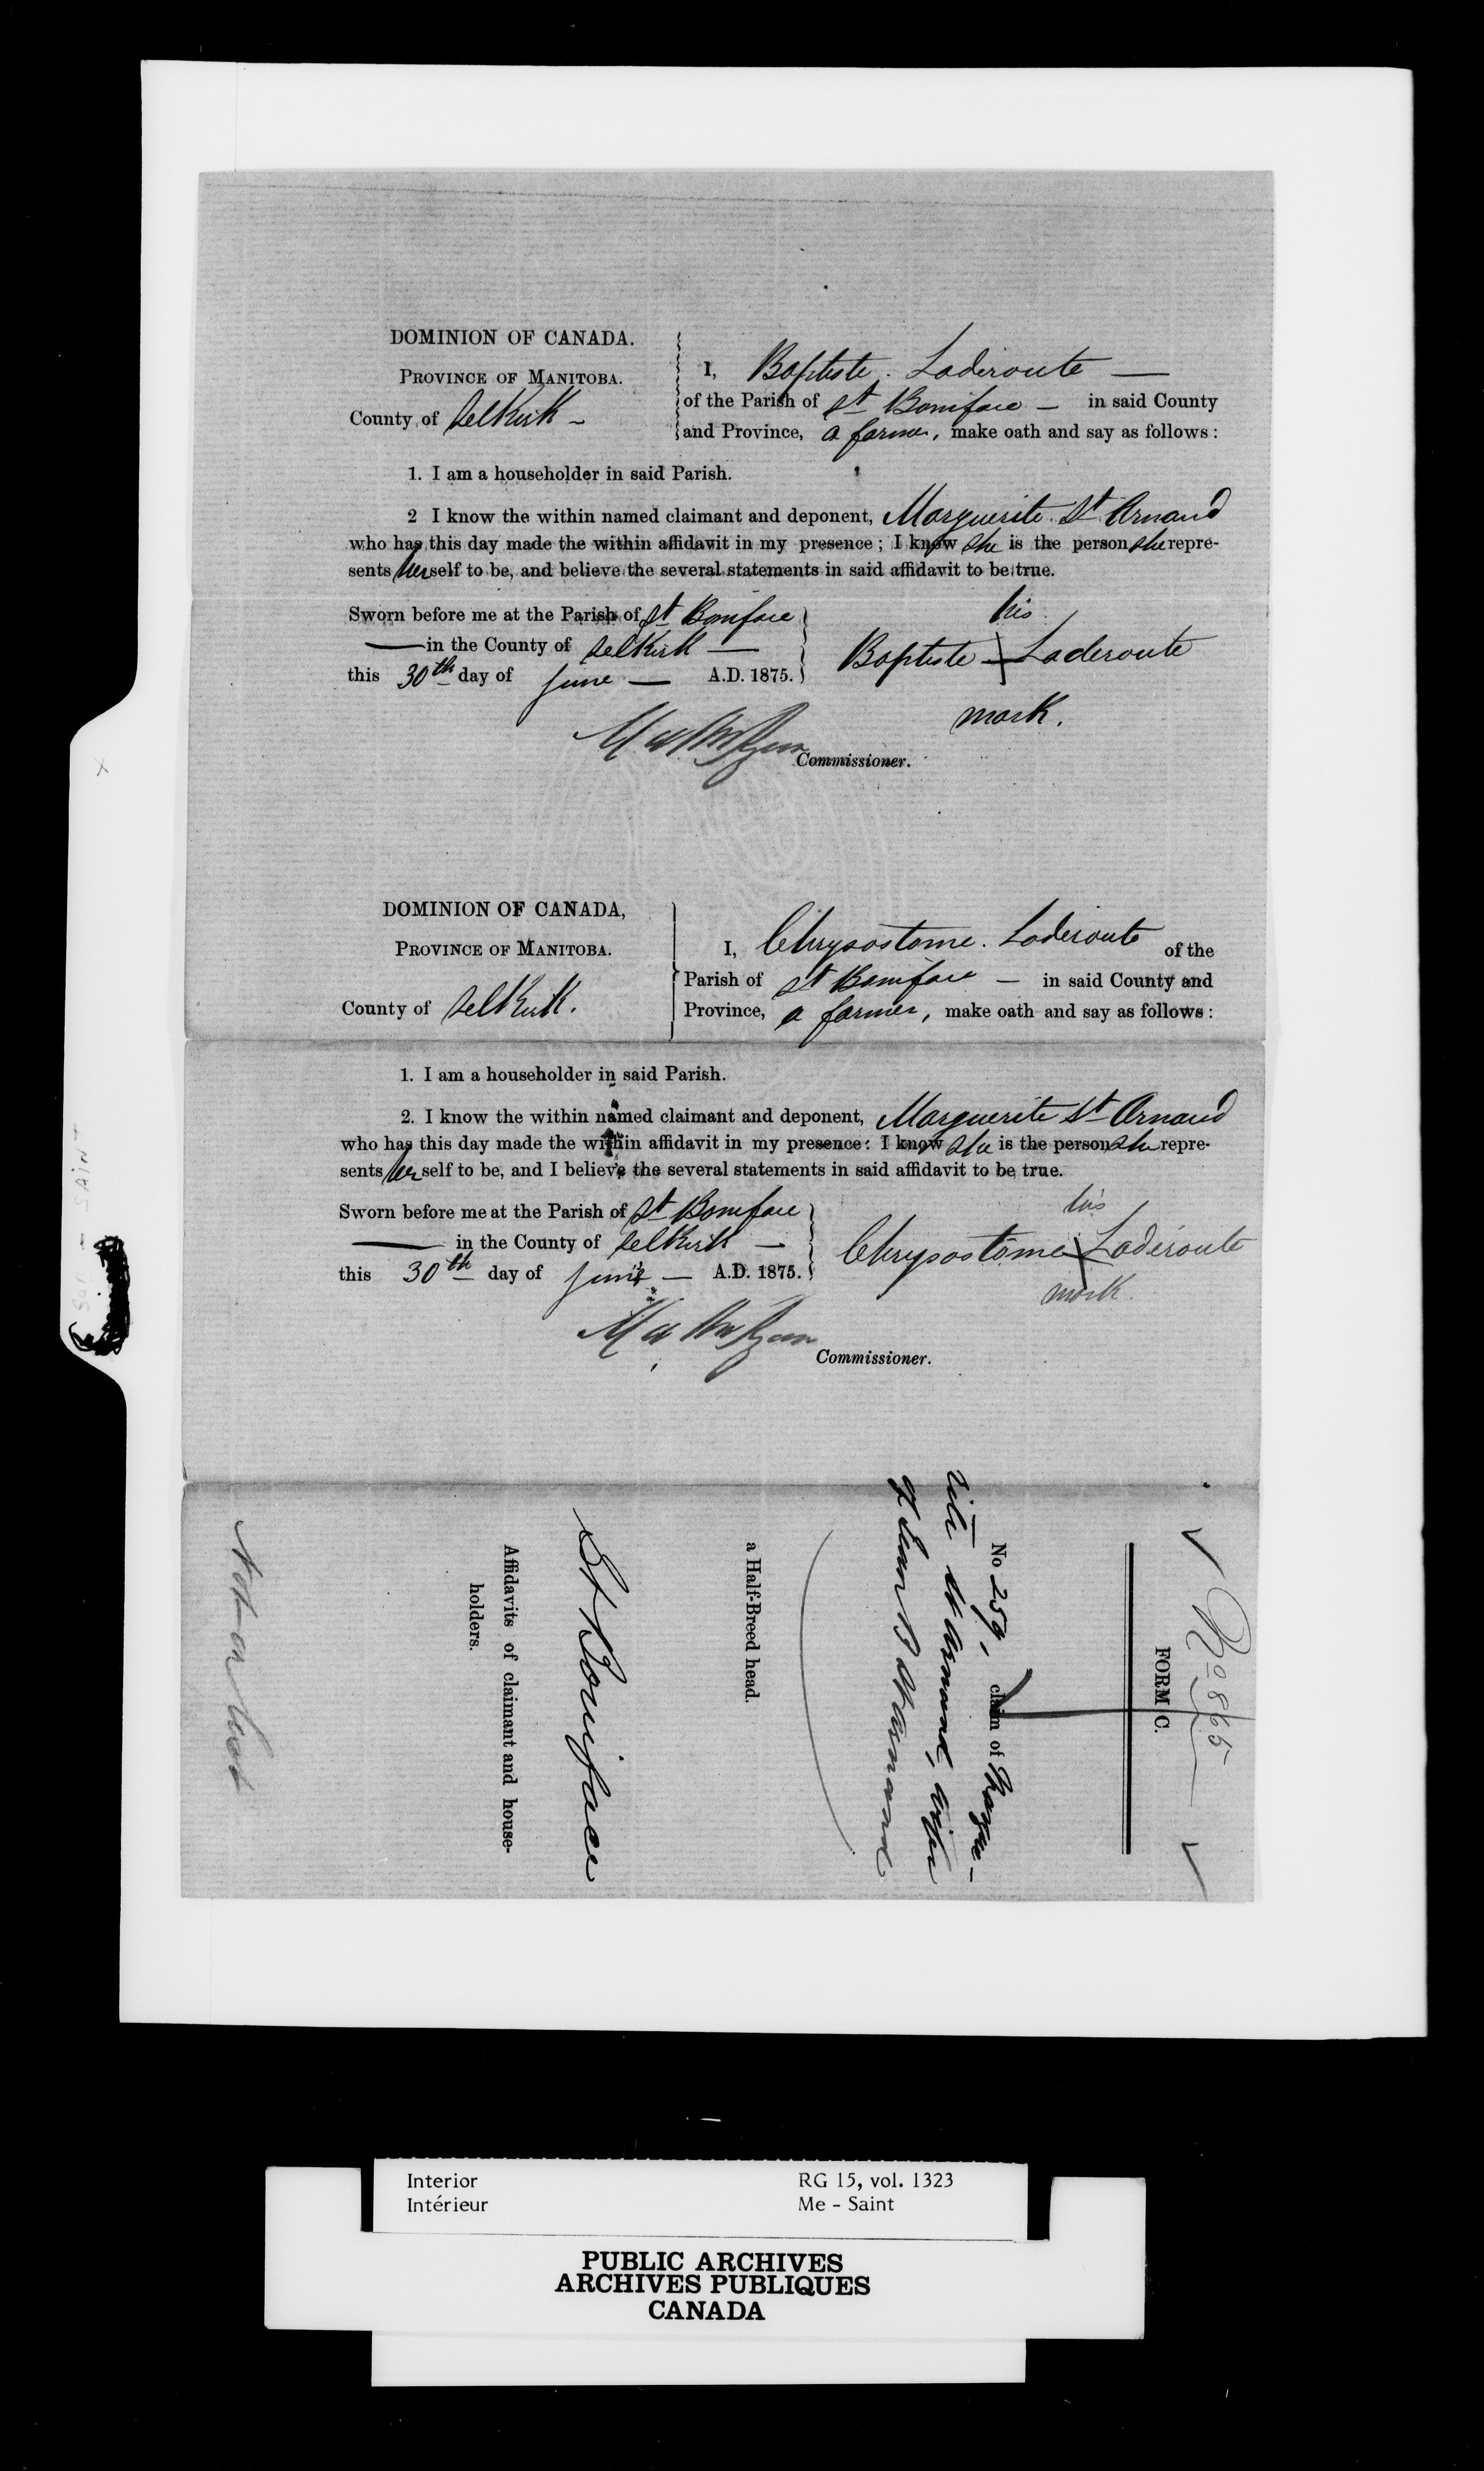 DOMINION OF CANADA.
PROVINCE OF MANITOBA.
County of Selkirk -
I, Baptiste. Laderoute —
of the Parish of St Boniface — in said County
and Province, a farmer, make oath and say as follows:
1. I am a householder in said Parish.
2 I know the within named claimant and deponent, Marguerite St Arnaud
who has this day made the within affidavit in my presence; I know she is the person she repre-
sents herself to be, and believe the several statements in said affidavit to be true.
Sworn before me at the Parish of St Boniface
— in the County of Selkirk —
this 30th day of June — A.D. 1875.
his
Baptiste X Laderoute
mark.
Commissioner.
DOMINION OF CANADA,
PROVINCE OF MANITOBA.
County of Selkirk.
I, Chrysostome. Laderoute of the
Parish of St Boniface — in said County and
Province, a farmer, make oath and say as follows:
1. I am a householder in said Parish.
2. I know the within named claimant and deponent, Marguerite St Arnaud
who has this day made the within affidavit in my presence: I know she is the person she repre-
sents her self to be, and I believe the several statements in said affidavit to be true.
Sworn before me at the Parish of St Boniface
— in the County of Selkirk —
this 30th day of June — A.D. 1875.
his
Chrysostome X Laderoute
mark.
Commissioner.
FORM C.
No 259, claim of Margue-
rite St Arnaud, wife
of Jean B St Arnaud
a Half-Breed head.
St Boniface
Affidavits of claimant and house-
holders.
Not on list
SAINT
Interior RG 15, vol. 1323
Intérieur Me - Saint
PUBLIC ARCHIVES
ARCHIVES PUBLIQUES
CANADA